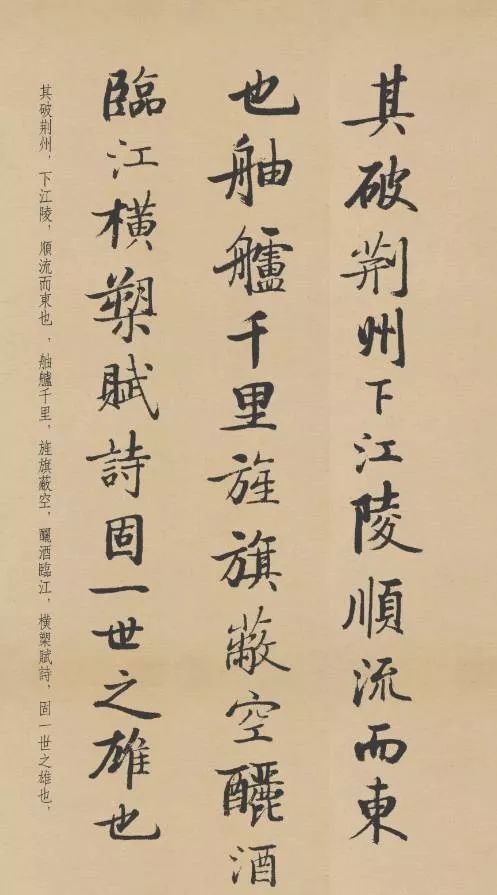 其破荆州下江陵順流而東
也舳艫千里旌旗蔽空釃酒
臨江横槊賦詩固一世之雄也
其破荆州，下江陵，順流而東也，舳艫千里，旌旗蔽空，釃酒臨江，横槊賦詩，固一世之雄也，